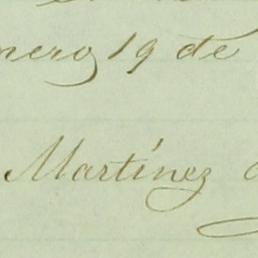 nero 19 de
Martínez